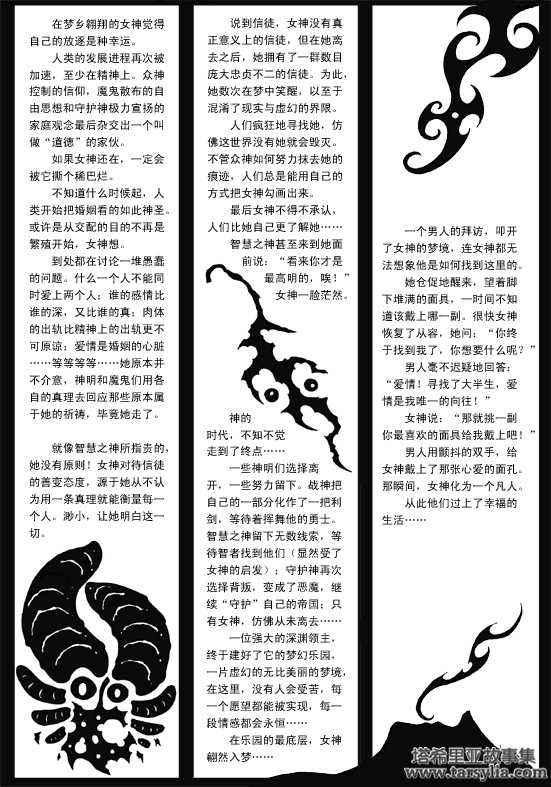 在梦乡翱翔的女神觉得
自己的放逐是种幸运。
人类的发展进程再次被
加速，至少在精神上。众神
控制的信仰，魔鬼散布的自
由思想和守护神极力宣扬的
家庭观念最后杂交出一个叫
做“道德”的家伙。
如果女神还在，一定会
被它撕个稀巴烂。
不知道什么时候起，人
类开始把婚姻看的如此神圣。
或许是从交配的目的不再是
繁殖开始，女神想。
到处都在讨论一堆愚蠢
的问题。什么一个人不能同
时爱上两个人；谁的感情比
谁的深，又比谁的真；肉体
的出轨比精神上的出轨更不
可原谅；爱情是婚姻的心脏
……等等等等……她原本并
不介意，神明和魔鬼们用各
自的真理去回应那些原本属
于她的祈祷，毕竟她走了。
就像智慧之神所指责的，
她没有原则！女神对待信徒
的善变态度，源于她从不认
为用一条真理就能衡量每一
个人。渺小，让她明白这一
切。
说到信徒，女神没有真
正意义上的信徒，但在她离
去之后，她拥有了一群数目
庞大忠贞不二的信徒。为此，
她数次在梦中笑醒，以至于
混淆了现实与虚幻的界限。
人们疯狂地寻找她，仿
佛这世界没有她就会毁灭。
不管众神如何努力抹去她的
痕迹，人们总是能用自己的
方式把女神勾画出来。
最后女神不得不承认，
人们比她自己更了解她……
智慧之神甚至来到她面
前说：“看来你才是
最高明的，唉！”
女神一脸茫然。
神的
时代，不知不觉
走到了终点……
一些神明们选择离
开，一些努力留下。战神把
自己的一部分化作了一把利
剑，等待着挥舞他的勇士。
智慧之神留下无数线索，等
待智者找到他们（显然受了
女神的启发）；守护神再次
选择背叛，变成了恶魔，继
续“守护”自己的帝国；只
有女神，仿佛从未离去……
一位强大的深渊领主，
终于建好了它的梦幻乐园，
一片虚幻的无比美丽的梦境，
在这里，没有人会受苦，每
一个愿望都能被实现，每一
段情感都会永恒……
在乐园的最底层，女神
翩然入梦……
一个男人的拜访，叩开
了女神的梦境，连女神都无
法想象他是如何找到这里的。
她仓促地醒来，望着脚
下堆满的面具，一时间不知
道该戴上哪一副。很快女神
恢复了从容，她问：“你终
于找到我了，你想要什么呢？”
男人毫不迟疑地回答：
“爱情！寻找了大半生，爱
情是我唯一的向往！”
女神说：“那就挑一副
你最喜欢的面具给我戴上吧！”
男人用颤抖的双手，给
女神戴上了那张心爱的面孔。
那瞬间，女神化为一个凡人。
从此他们过上了幸福的
生活……
塔希里亚故事集
www.tarsylia.com